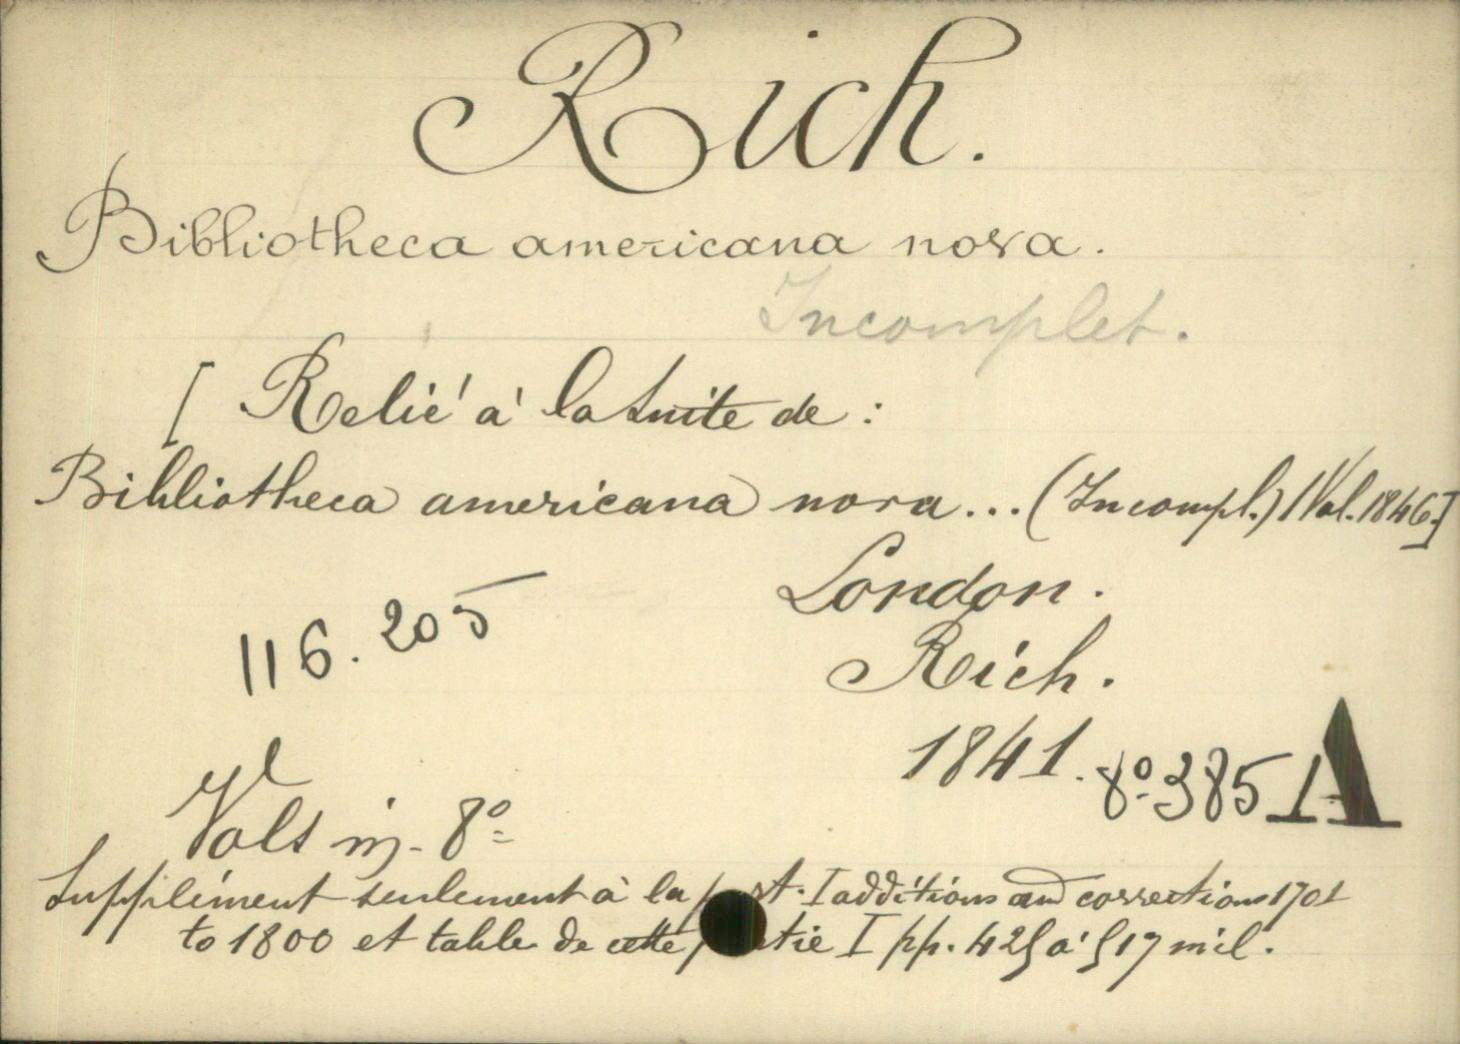 Rich.
Bibliotheca americana nova.
Incomplet.
[ Relié à la suite de :
Bibliotheca americana nova... (Incompl.) 1 Vol. 1846.]
London.
116.205
Rich.
1841.
8º 385 A
Vol in-8º
Supplément seulement à la part. I additions and corrections 1701
to 1800 et table de cette partie I pp. 425 à 517